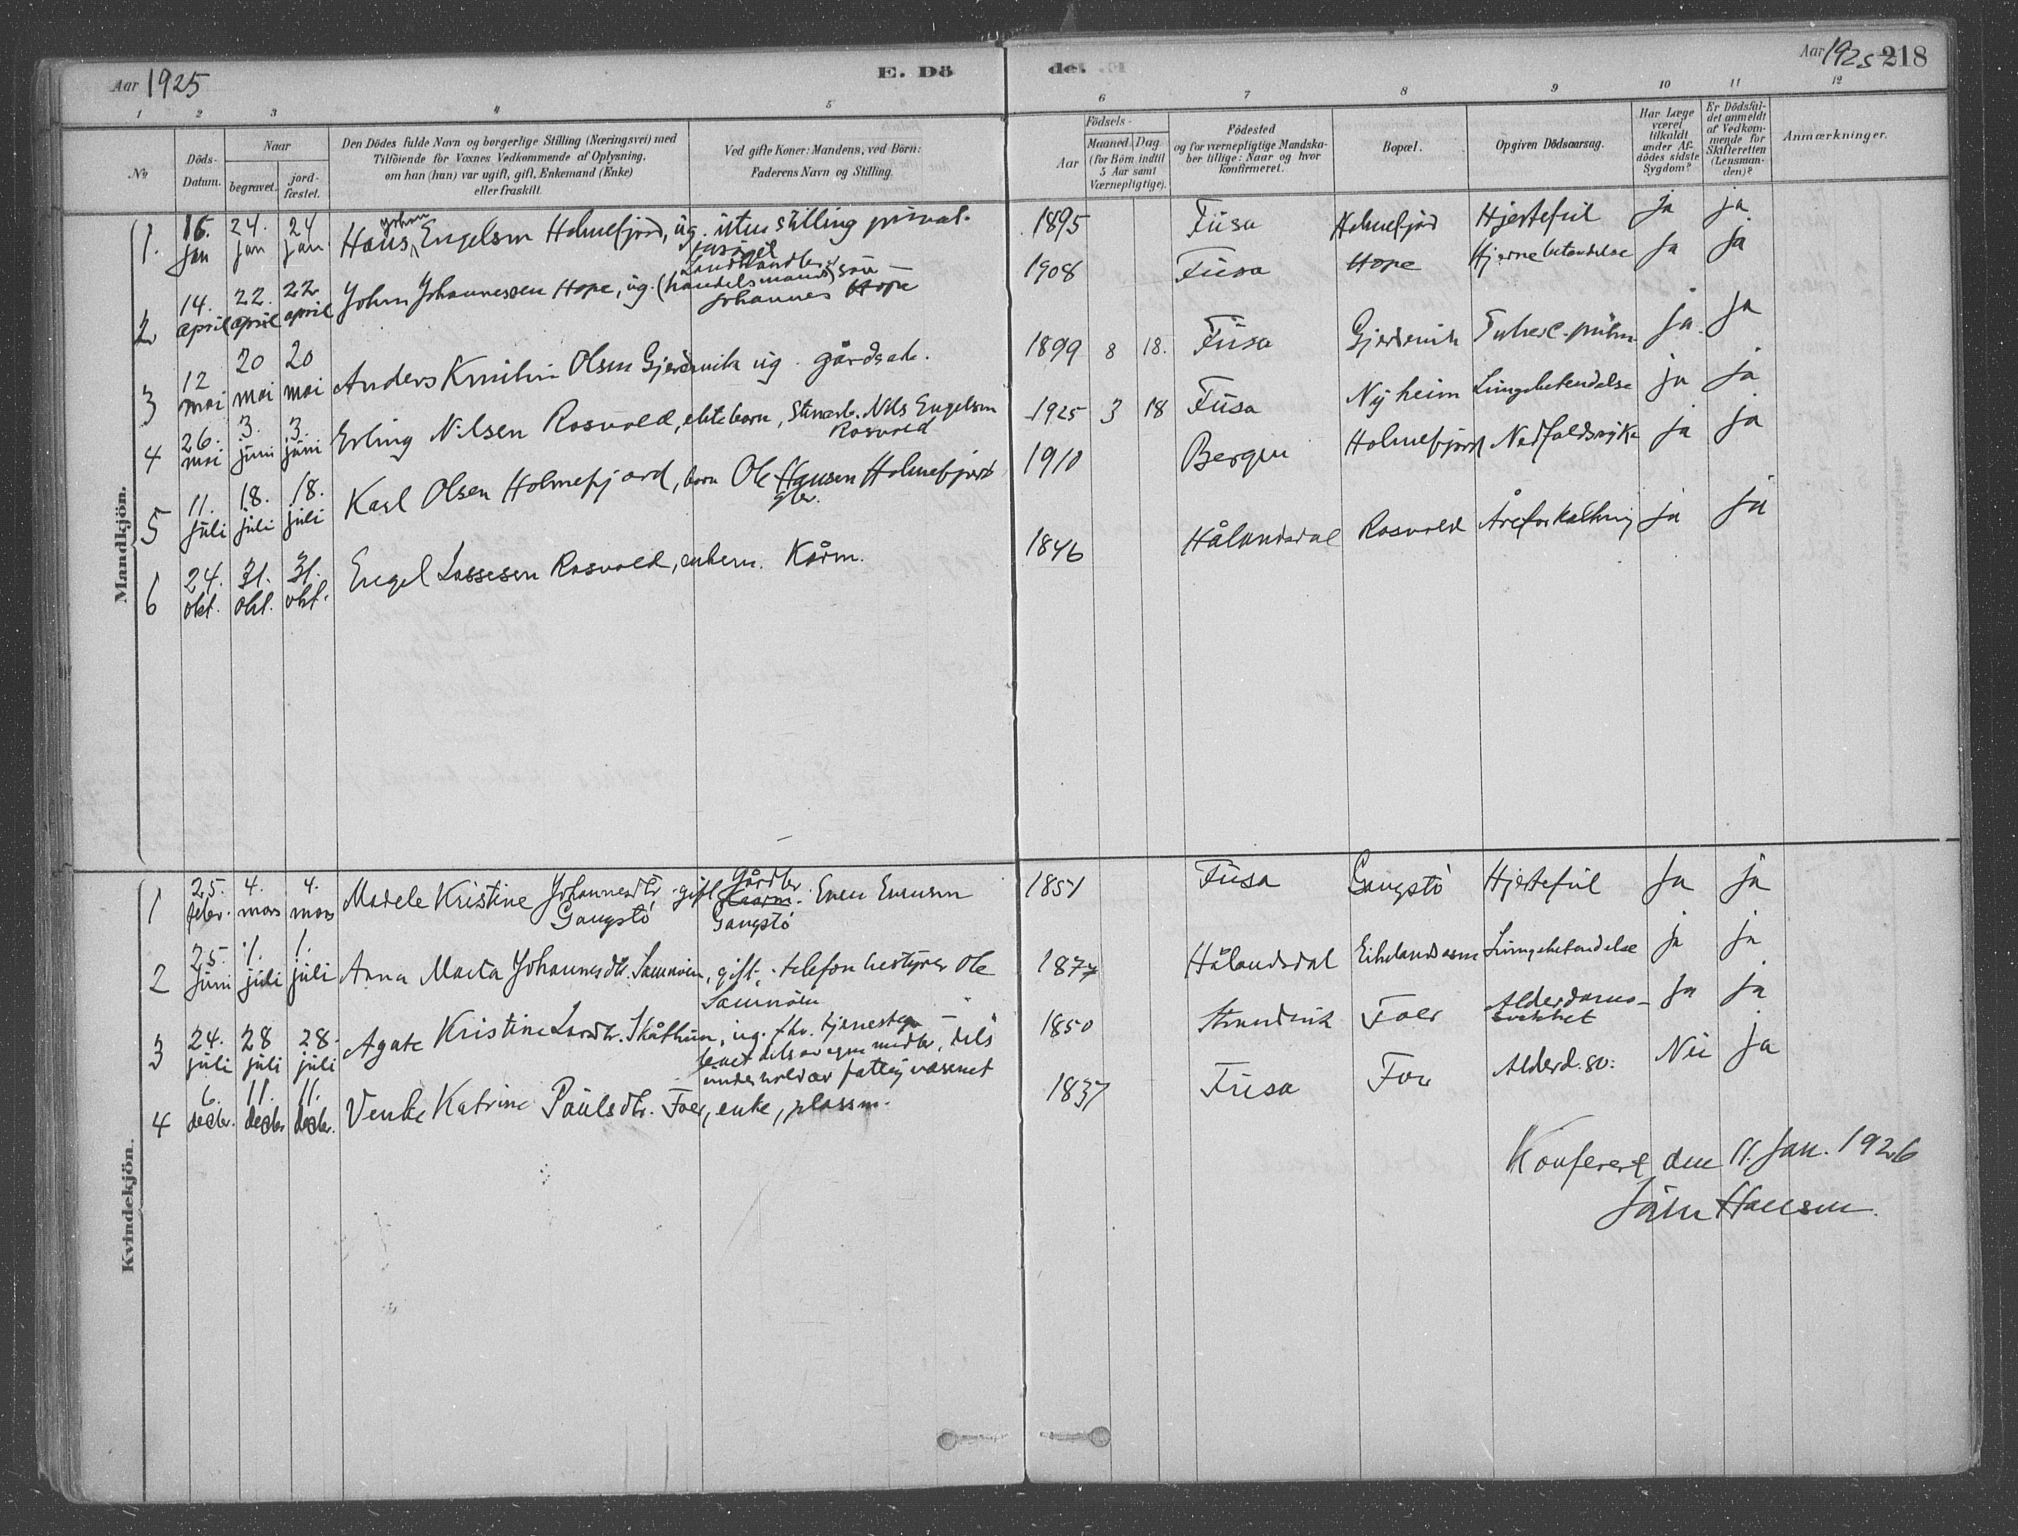 Aar 1925
E. Dö
de.
Aar 1925 218
1 2 3 4 5 6 7 8 9 10 11 12
No
Döds-Datum.
Naar
begravet.
jord-fæstet.
Den Dödes fulde Navn og borgerlige Stilling (Næringsvei) med
Tilföiende for Voxnes Vedkommende af Oplysning,
om han (hun) var ugift, gift, Enkemand (Enke)
eller fraskilt.
Ved gifte Koner: Mandens, ved Börn:
Faderens Navn og Stilling.
Födsels-
Aar
Maaned. Dag.
(for Börn indtil
5 Aar samt
Værnepligtige).
Födested
og for værnepligtige Mandska-
ber tillige: Naar og hvor
konfirmeret.
Bopæl.
Opgiven Dödsaarsag.
Har Læge
været
tilkaldt
under Af-
dödes sidste
Sygdom?
Er Dödsfal-
det anmeldt
af Vedkom-
mende for
Skifteretten
(Lensman-
den)?
Anmærkninger.
Mandkjön.
1. 15. jan 24. jan 24 jan Hans Johan Engelsen Holmefjord, ug. uten stilling privat. 1895 Fusa Holmefjord Hjertefeil Ja ja
2 14. april 22. april 22 april John Johannessen Hope, ug. (handelsmand) søn Landhandler Johannes Hope 1908 Fusa Hope Hjernebetendelse Ja Ja
3 12 mai 20 mai 20 mai Anders Kristian Olsen Gjerdevik ug. gårdsarb. 1899 8 18. Fusa Gjerdevik Tuberc. pulm Ja Ja
4 26. mai 3. juni 3. juni Erling Nilsen Rosvold, ekte barn, Nils Engelsen Rosvold 1925 3 18 Fusa Nyheim Lungebetendelse ja ja
5 11. juli 18. juli 18. juli Karl Olsen Holmefjord, barn Ole Hansen Holmefjord gbr. 1910 Bergen Holmefjord Nedfaldssyke ja ja
6 24. okt. 31. okt. 31. okt. Engel Lassesen Rosvold, enkem. Kårm. 1846 Hålandsdal Rosvold Åreforkalkning ja ja
Kvindekjön.
1 25. febr. 4. mars 4. mars Madele Kristine Johannesdtr. Gangstö gift Gårdbr. Kaarm. Even Evensen Gangstö 1851 Fusa Gangstö Hjertefeil Ja ja
2 25. juni 1. juli 1. juli Anna Marta Johannesdtr. Samnøen, gift, telefonbestyrer Ole Samnøen 1877 Hålandsdal Eikelandsosen Lungebetendelse ja ja
3 24. juli 28 juli 28. juli Agate Kristine Larsdtr. Skåthun, ug. fhv. tjenestep. levet dels av egne midler, dels underhold av fattigvæsenet 1850 Strandvik Foer Alderdoms-svakhet Ja ja
4 6. decbr. 11. decbr 11. decbr. Venke Katrine Paulsdtr. Foer, enke, plassm. 1837 Fusa Foer Alderd. sv. Nei ja
Konferert den 11. Jan. 1926
Hansen.